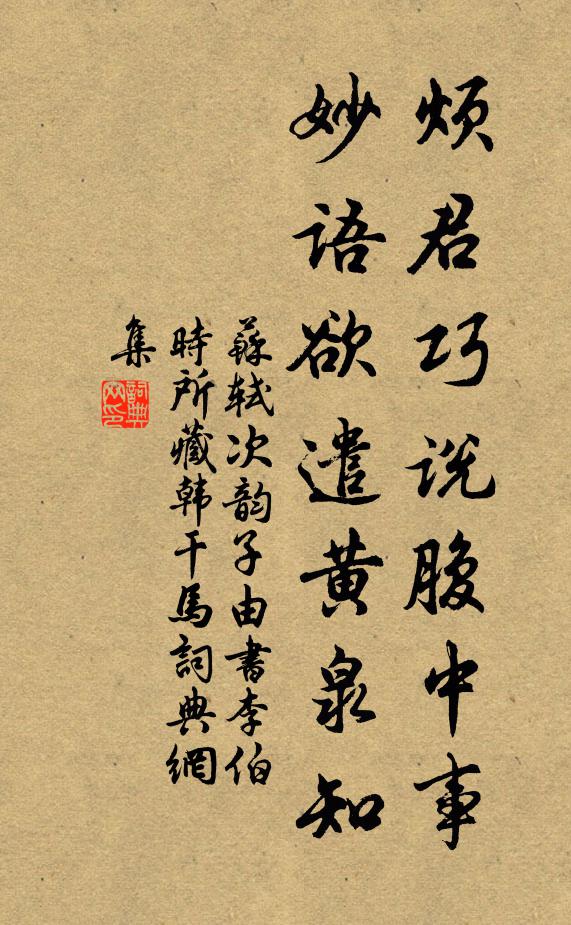 煩君巧说腹中事
妙語欲遣黄泉知
蘇軾次韵子由書李伯
時所藏韩干馬詞典網
集
詞典
网印